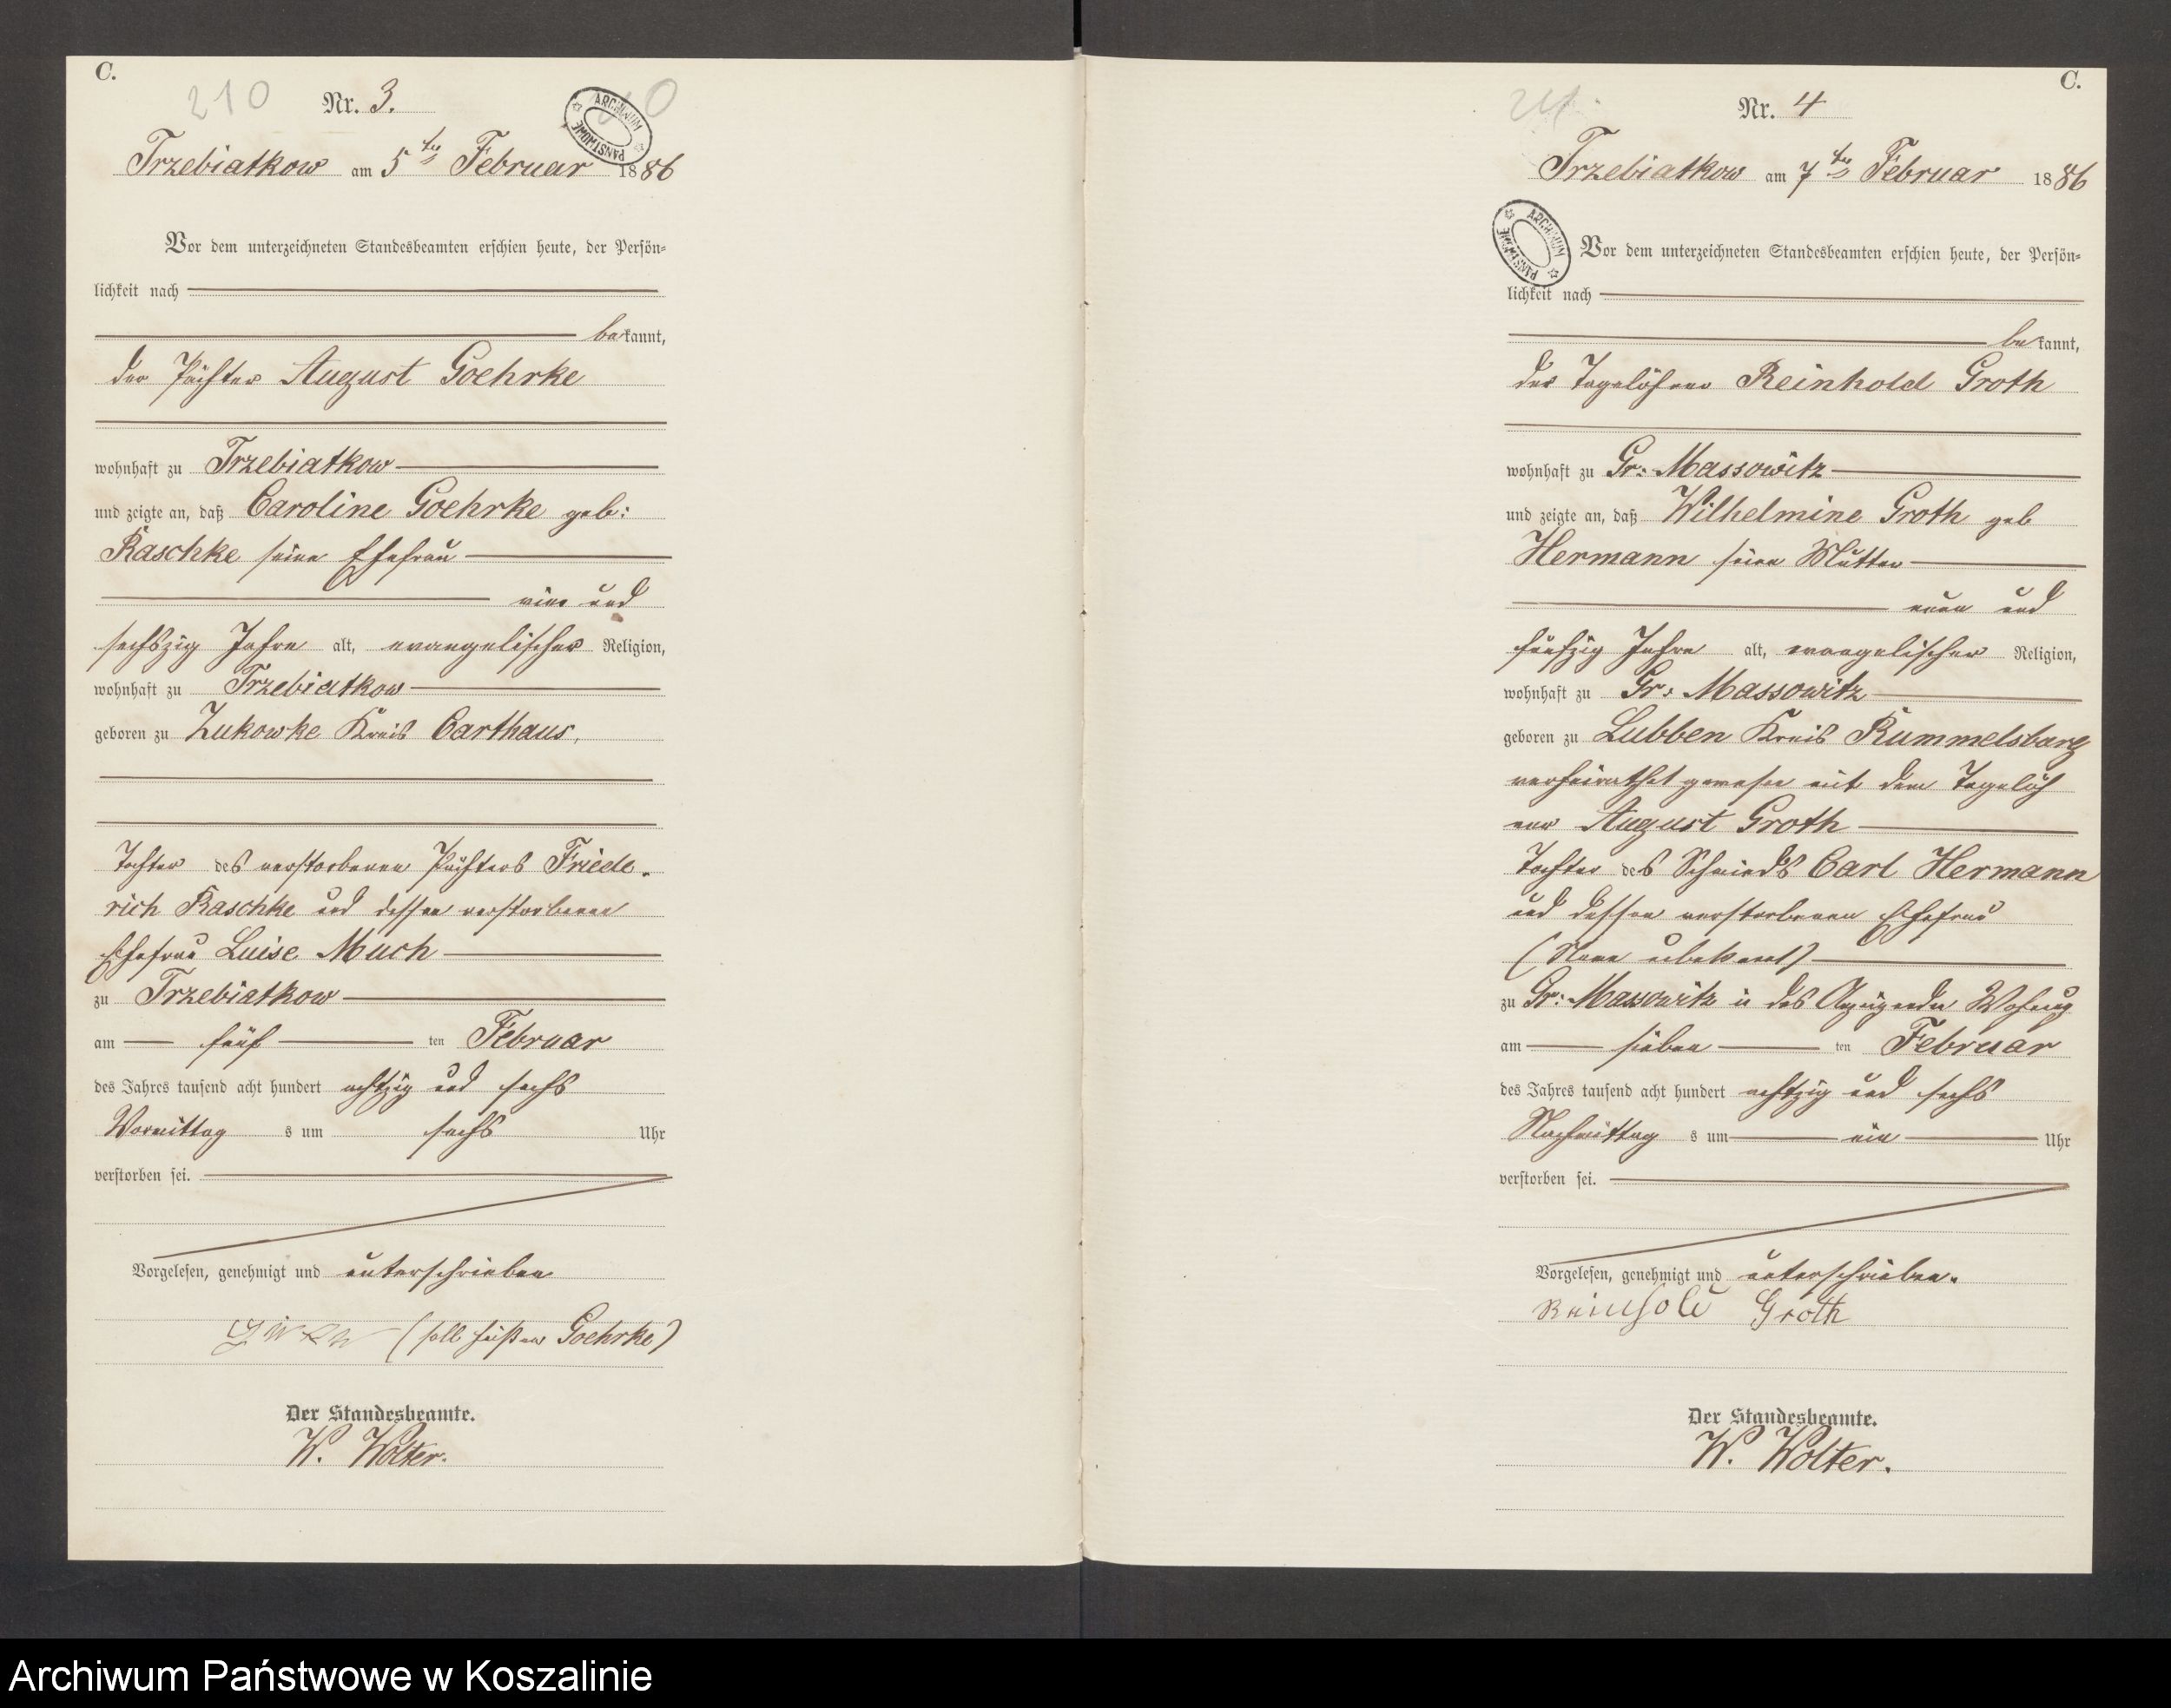 C.
210
Nr. 3.
ARCHIWUM PAŃSTWOWE
Trzebiatkow am 5ten Februar 1886
Vor dem unterzeichneten Standesbeamten erschien heute, der Persön-
lichkeit nach
bekannt,
der Pächter August Goehrke
wohnhaft zu Trzebiatkow
und zeigte an, daß Caroline Goehrke geb:
Raschke seine Ehefrau
ein und
sechszig Jahre alt, evangelischer Religion,
wohnhaft zu Trzebiatkow
geboren zu Zukowke Kreis Carthaus,
Tochter des verstorbenen Pächters Friede-
rich Raschke und dessen verstorbenen
Ehefrau Luise Much
zu Trzebiatkow
am fünf ten Februar
des Jahres tausend acht hundert achtzig und sechs
Vormittag s um sechs Uhr
verstorben sei.
Vorgelesen, genehmigt und unterschrieben
(soll heißen Goehrke)
Der Standesbeamte.
W. Wolter.
C.
Nr. 4
Trzebiatkow am 7ten Februar 1886
ARCHIWUM PAŃSTWOWE
Vor dem unterzeichneten Standesbeamten erschien heute, der Persön-
lichkeit nach
bekannt,
der Tagelöhner Reinhold Groth
wohnhaft zu Gr: Massowitz
und zeigte an, daß Wilhelmine Groth geb
Hermann seine Mutter
neun und
fünfzig Jahre alt, evangelischer Religion,
wohnhaft zu Gr: Massowitz
geboren zu Lubben Kreis Rummelsburg
verheirathet gewesen mit dem Tagelöh
ner August Groth
Tochter des Schmieds Carl Hermann
und dessen verstorbenen Ehefrau
(Name unbekannt)
zu Gr: Massowitz in des Anzeigenden Wohnung
am sieben ten Februar
des Jahres tausend acht hundert achtzig und sechs
Nachmittag s um ein Uhr
verstorben sei.
Vorgelesen, genehmigt und unterschrieben.
Reinhold Groth
Der Standesbeamte.
W. Wolter.
Archiwum Państwowe w Koszalinie